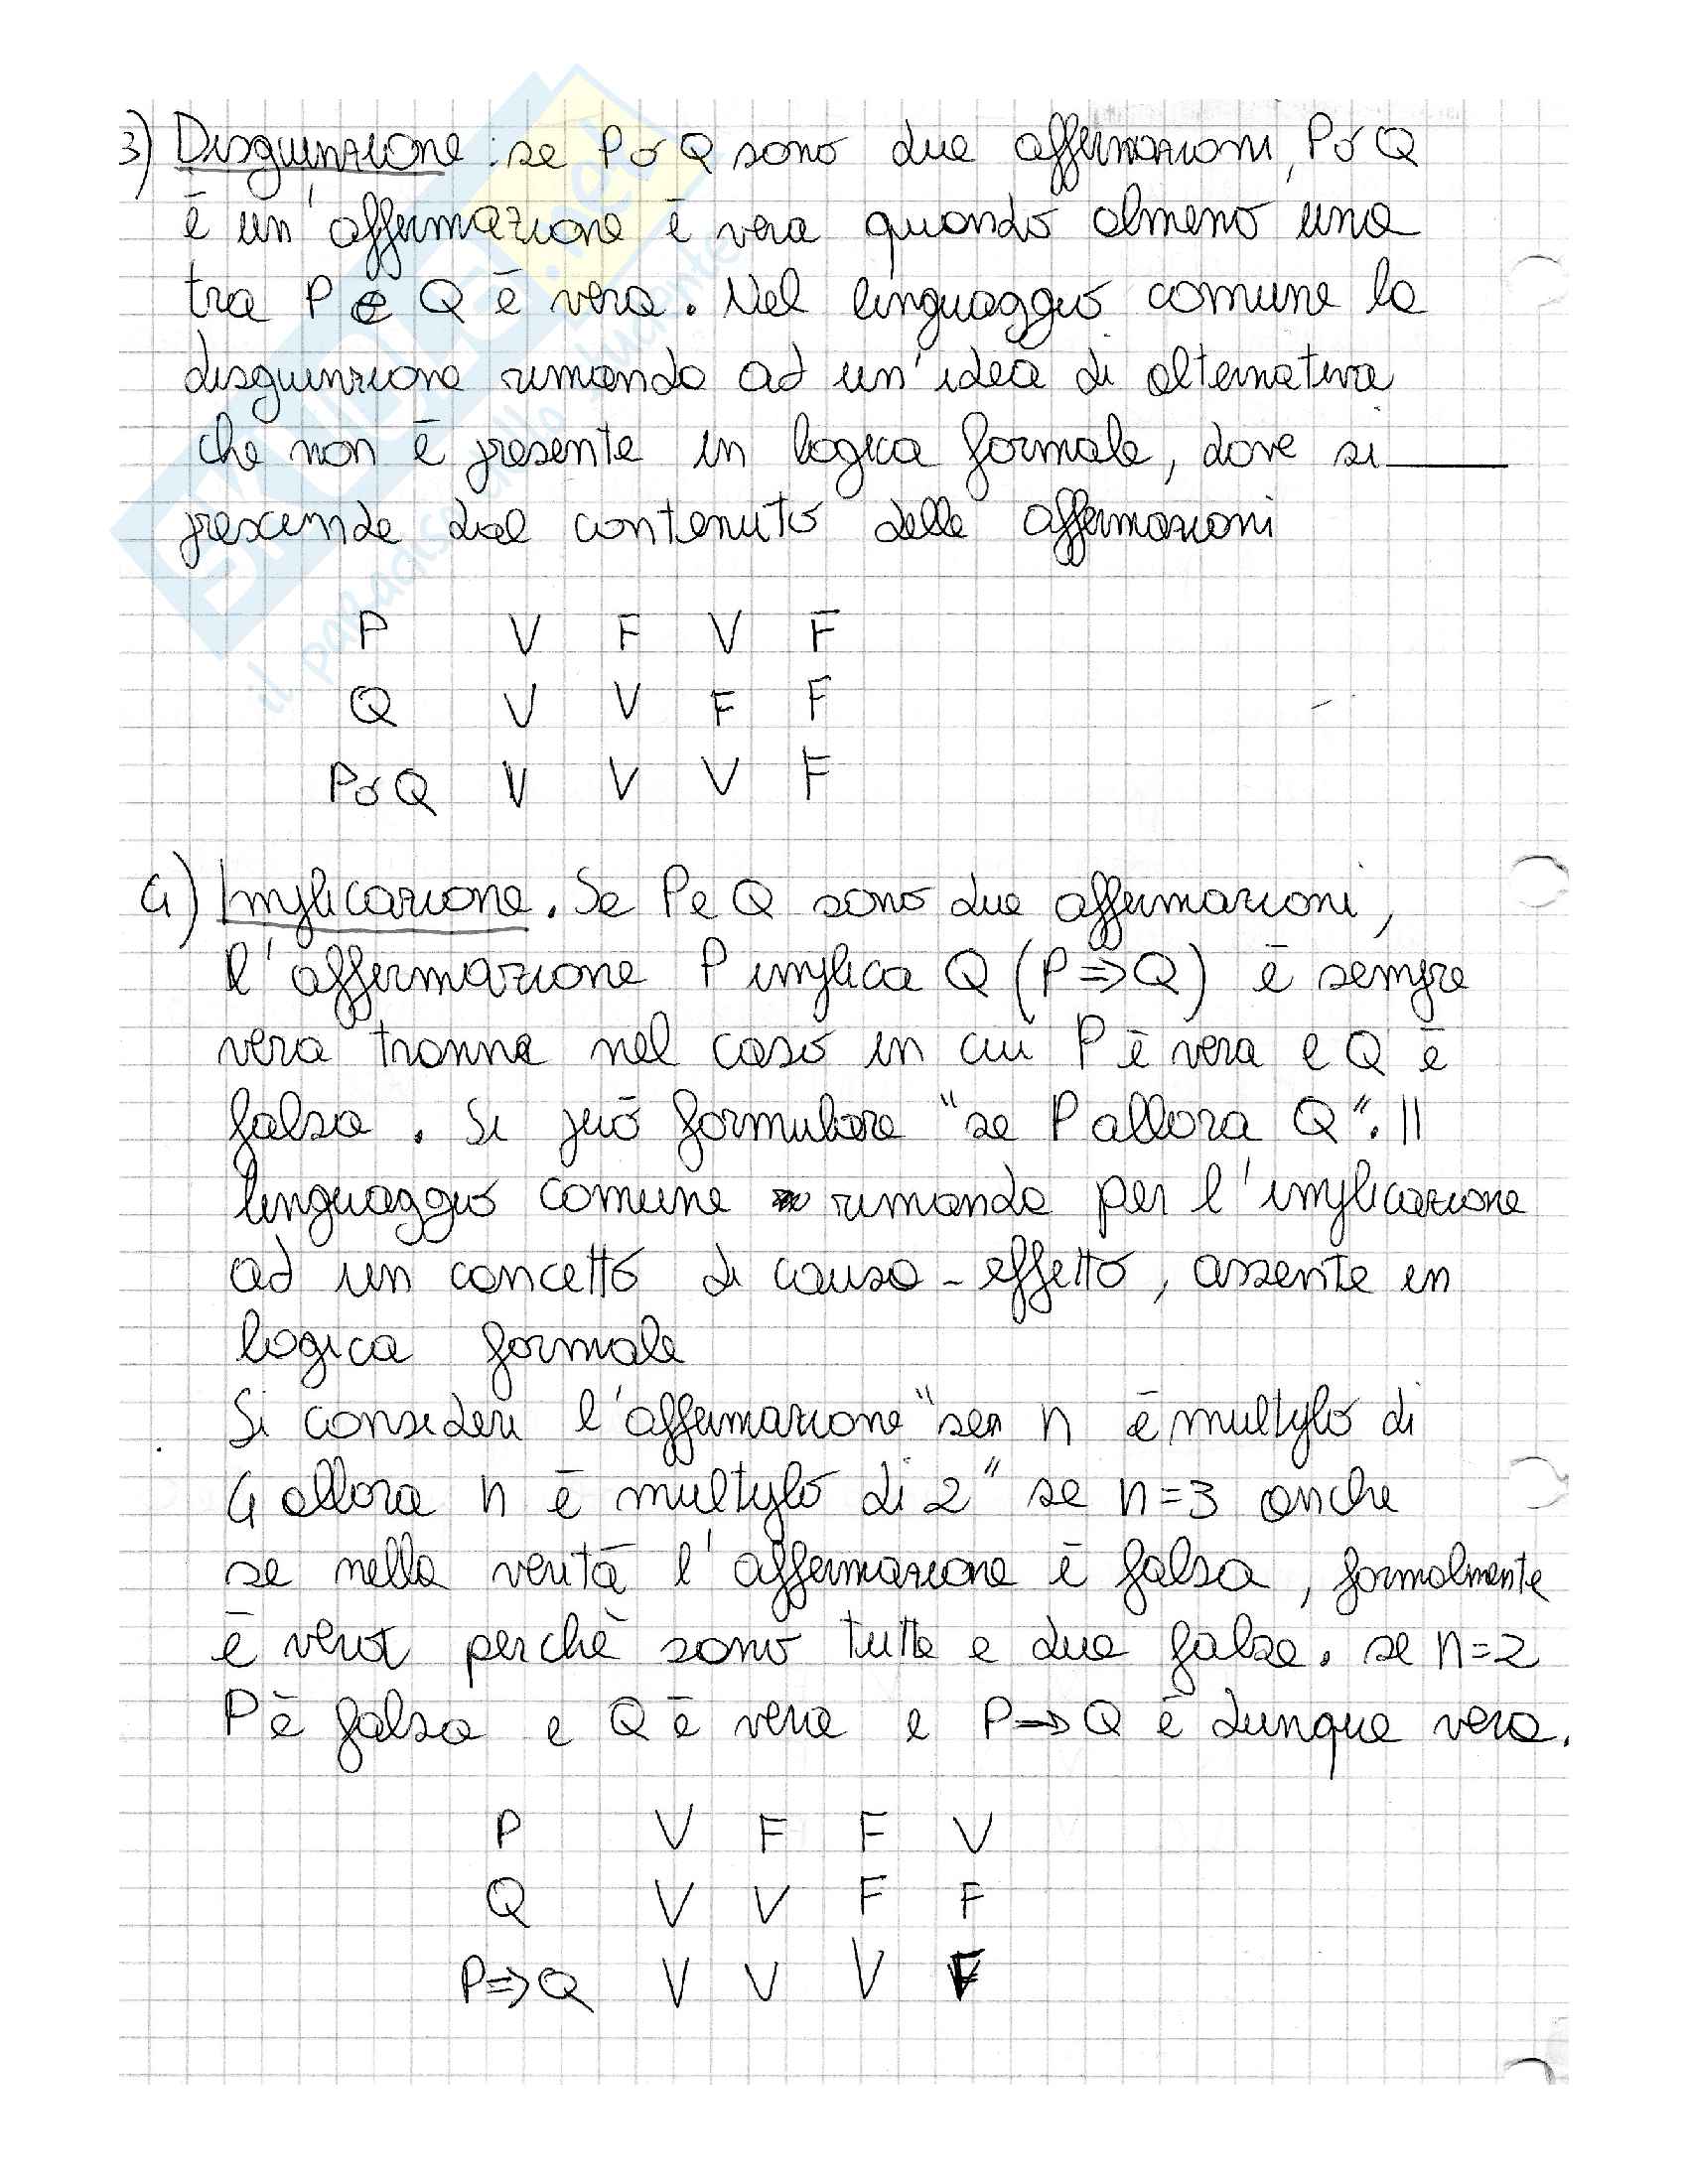 3) Disgiunzione: se P o Q sono due affermazioni, P o Q
è un'affermazione è vera quando almeno una
tra P e Q è vera. Nel linguaggio comune la
disgiunzione rimanda ad un'idea di alternativa
che non è presente in logica formale, dove si
prescinde dal contenuto delle affermazioni
P V F V F
Q V V F F
P o Q V V V F
4) Implicazione. Se P e Q sono due affermazioni,
l'affermazione P implica Q (P ⇒ Q) è sempre
vera tranne nel caso in cui P è vera e Q è
falsa. Si può formulare "se P allora Q". Il
linguaggio comune rimanda per l'implicazione
ad un concetto di causa-effetto, assente in
logica formale
Si consideri l'affermazione "se n è multiplo di
4 allora n è multiplo di 2" se n=3 anche
se nella verità l'affermazione è falsa, formalmente
è vera perchè sono tutte e due false. se n=2
P è falsa e Q è vera e P ⇒ Q è dunque vera.
P V F F V
Q V V F F
P ⇒ Q V V V F
SKUOLA.net
il paradiso dello studente